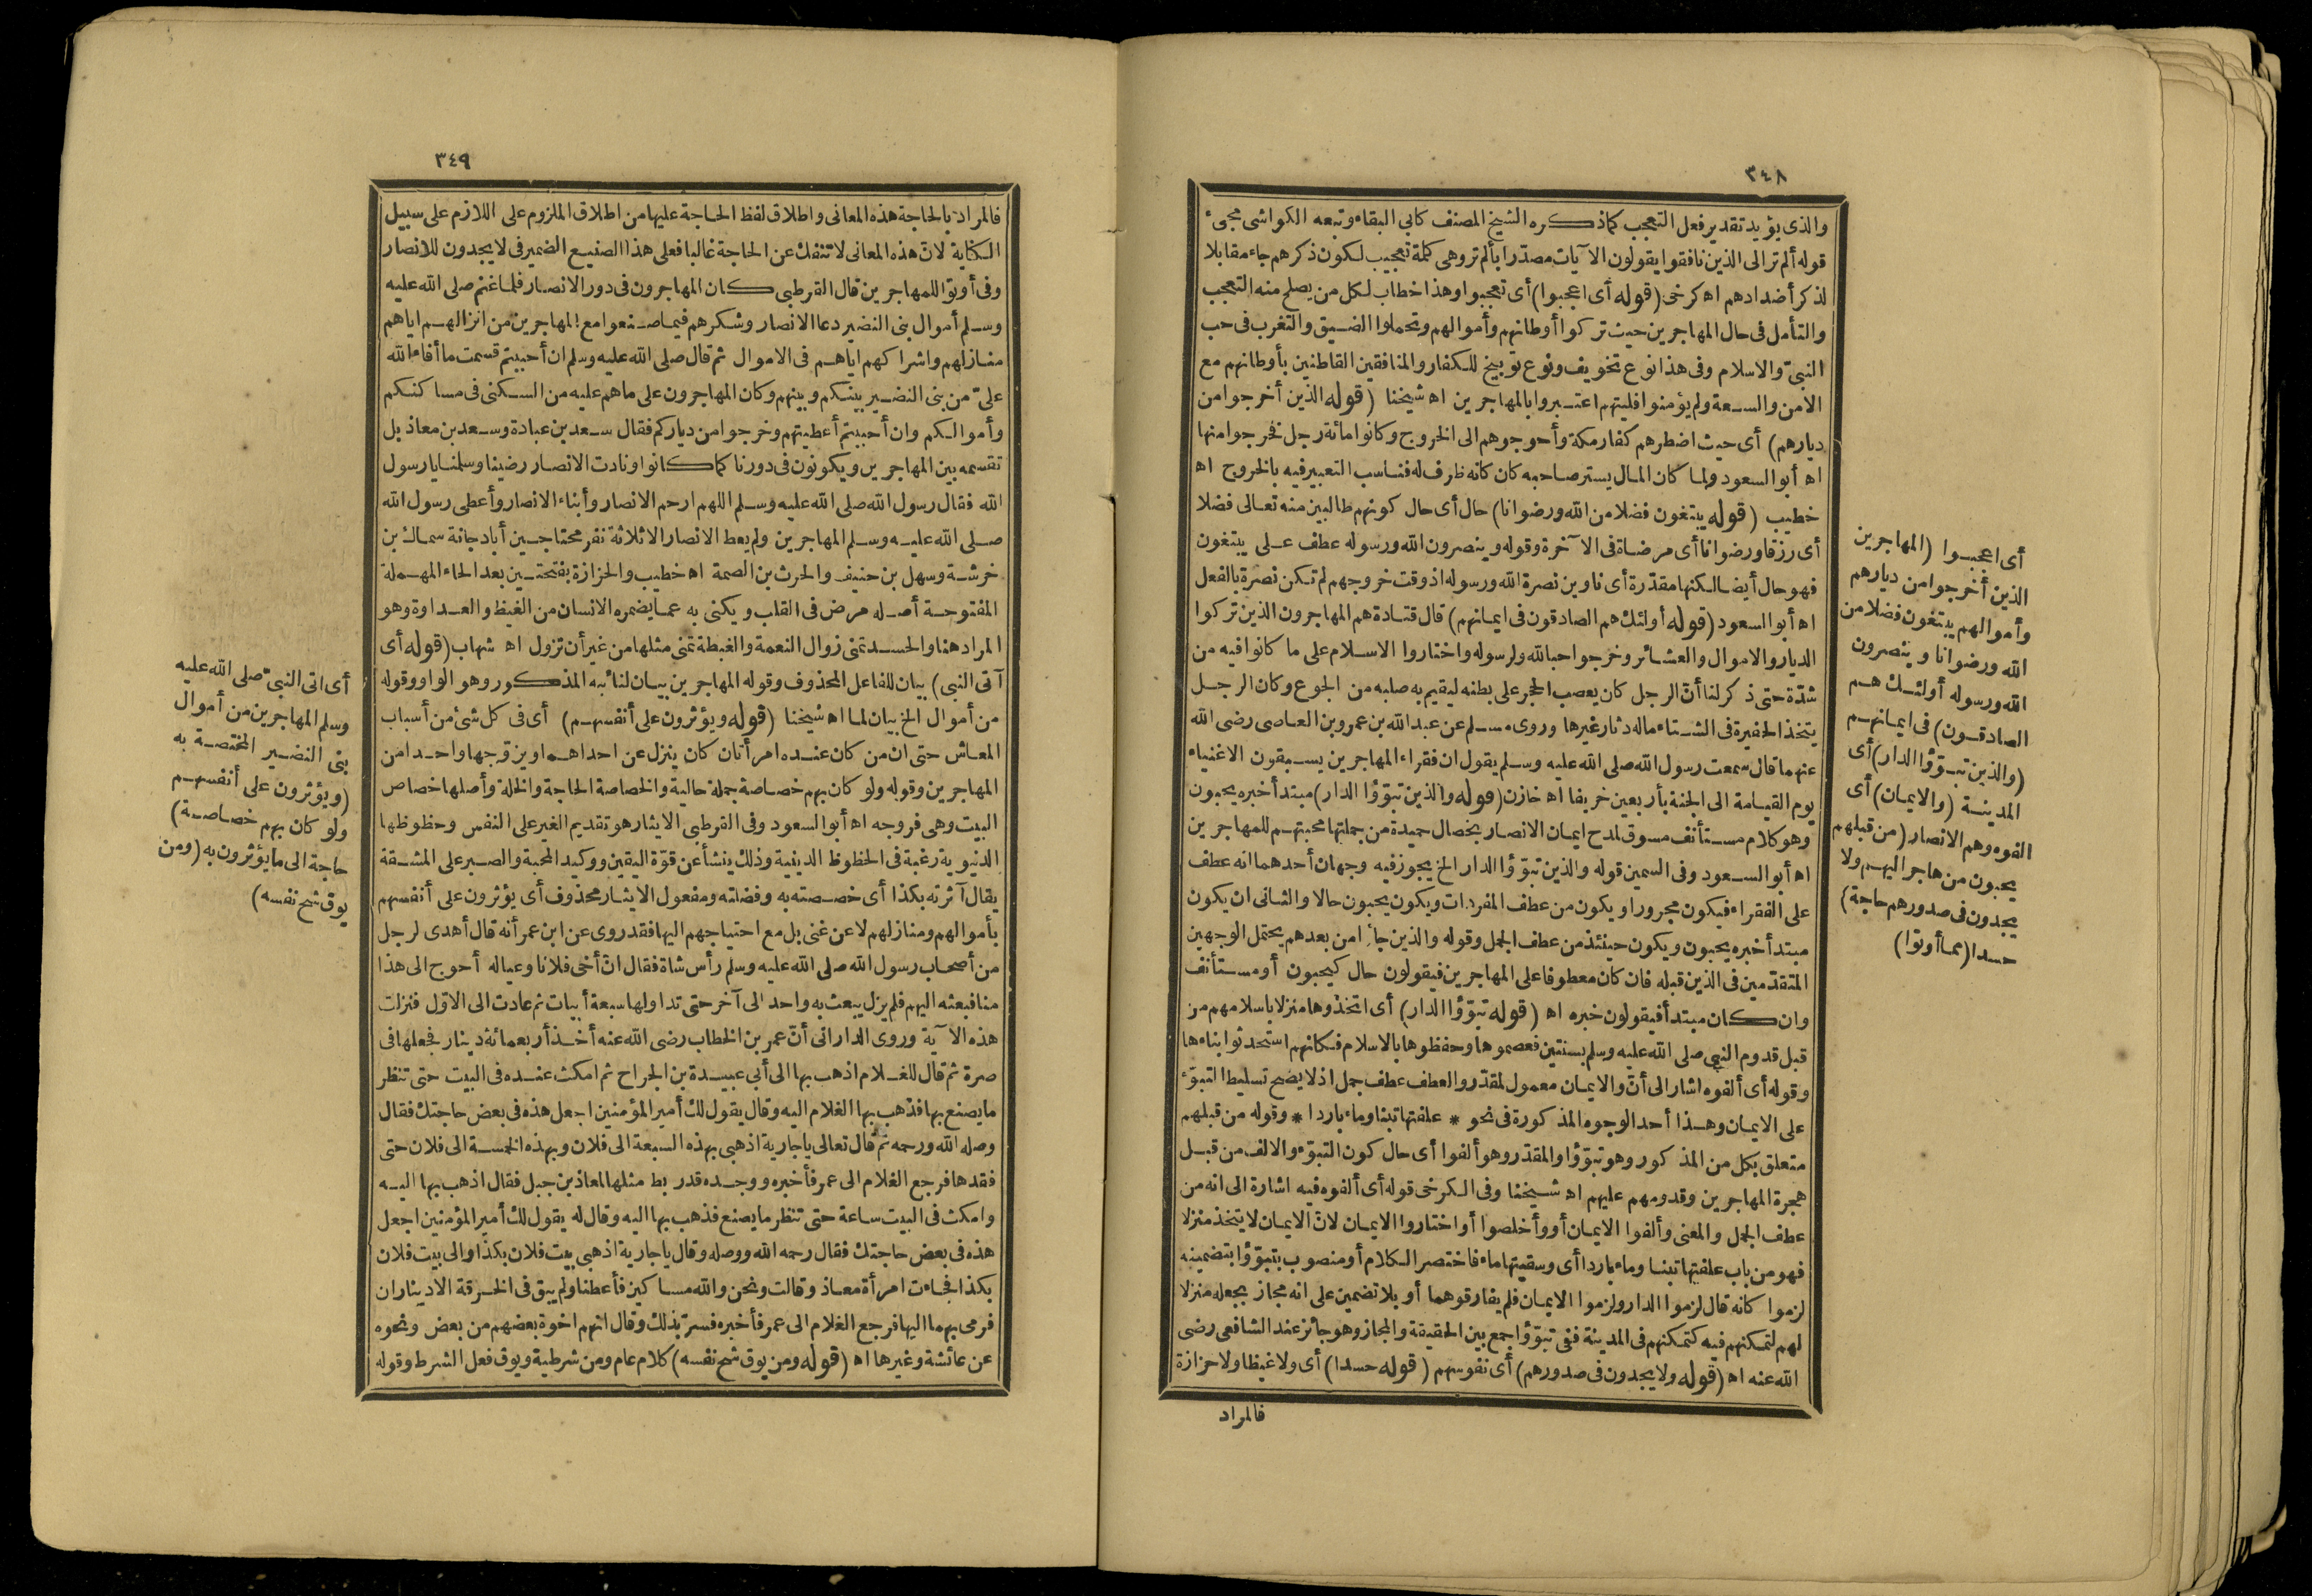 ٣٤٨
والذى يؤيد تقدير فعل التعجب كما ذكره الشيخ المصنف كابى البقاء وتبعه الكواشى مجىء
قوله ألم تر الى الذين نافقوا يقولون الآيات مصدرا بألم تر وهى كلمة تعجيب لكون ذكرهم جاء مقابلا
لذكر أضدادهم اه كرخى (قوله أى اعجبوا) أى تعجبوا وهذا خطاب لكل من يصلح منه التعجب
والتأمل فى حال المهاجرين حيث تركوا أوطانهم وأموالهم وتحملوا الضيق والتغرب فى حب
النبىّ والاسلام وفى هذا نوع تخويف ونوع توبيخ للكفار والمنافقين القاطنين بأوطانهم مع
الامن والسعة ولم يؤمنوا فليتهم اعتبروا بالمهاجرين اه شيخنا (قوله الذين أخرجوا من
ديارهم) أى حيث اضطرهم كفار مكة وأحوجوهم الى الخروج وكانوا مائة رجل فخرجوا منها
اه أبو السعود ولما كان المال يستر صاحبه كان كانه ظرف له فناسب التعبير فيه بالخروج اه
خطيب (قوله يبتغون فضلا من الله ورضوانا) حال أى حال كونهم طالبين منه تعالى فضلا
أى رزقا ورضوانا أى مرضاة فى الآخرة وقوله وينصرون الله ورسوله عطف على يبتغون
فهو حال أيضا لكنها مقدّرة أى ناوين نصرة الله ورسوله اذ وقت خروجهم لم تكن نصرة بالفعل
اه أبو السعود (قوله أولئك هم الصادقون فى ايمانهم) قال قتادة هم المهاجرون الذين تركوا
الديار والاموال والعشائر وخرجوا حبا لله ولرسوله واختاروا الاسلام على ما كانوا فيه من
شدّة حتى ذكر لنا أنّ الرجل كان يعصب الحجر على بطنه ليقيم به صلبه من الجوع وكان الرجل
يتخذ الحفيرة فى الشتاء ماله دثار غيرها وروى مسلم عن عبد الله بن عمرو بن العاصى رضى الله
عنهما قال سمعت رسول الله صلى الله عليه وسلم يقول ان فقراء المهاجرين يسبقون الاغنياء
يوم القيامة الى الجنة بأربعين خريفا اه خازن (قوله والذين تبوّؤا الدار) مبتدأ خبره يحبون
وهو كلام مستأنف مسوق لمدح ايمان الانصار بخصال حميدة من جملتها محبتهم للمهاجرين
اه أبو السعود وفى السمين قوله والذين تبوّؤا الدار الخ يجوز فيه وجهان أحدهما انه عطف
على الفقراء فيكون مجرورا ويكون من عطف المفردات ويكون يحبون حالا والثانى ان يكون
مبتدأ خبره يحبون ويكون حينئذ من عطف الجمل وقوله والذين جاؤا من بعدهم يحتمل الوجهين
المتقدّمين فى الذين قبله فان كان معطوفا على المهاجرين فيقولون حال كيحبون أو مستأنف
وان كان مبتدأ فيقولون خبره اه (قوله تبوّؤا الدار) أى اتخذوها منزلا باسلامهم من
قبل قدوم النبى صلى الله عليه وسلم بسنتين فعصموها وحفظوها بالاسلام فكانهم استحدثوا بناءها
وقوله أى ألفوه اشار الى أنّ والايمان معمول لمقدّر والعطف عطف جمل اذ لا يصح تسليط التبوّء
على الايمان وهذا أحد الوجوه المذكورة فى نحو * علفتها تبنا وماء باردا * وقوله من قبلهم
متعلق بكل من المذكور وهو تبوّؤا والمقدّر وهو ألفوا أى حال كون التبوّء والالف من قبل
هجرة المهاجرين وقدومهم عليهم اه شيخنا وفى الكرخى قوله أى ألفوه فيه اشارة الى انه من
عطف الجمل والمعنى وألفوا الايمان أو وأخلصوا أو اختاروا الايمان لانّ الايمان لا يتخذ منزلا
فهو من باب علفتها تبنا وماء باردا أى وسقيتها ماء فاختصر الكلام أو منصوب بتبوّؤا بتضمينه
لزموا كانه قال لزموا الدار ولزموا الايمان فلم يفارقوهما أو بلا تضمين على انه مجاز بجعله منزلا
لهم لتمكنهم فيه كتمكنهم فى المدينة ففى تبوّؤا جمع بين الحقيقة والمجاز وهو جائز عند الشافعى رضى
الله عنه اه (قوله ولا يجدون فى صدورهم) أى نفوسهم (قوله حسدا) أى ولا غيظا ولا حزازة
فالمراد
أى اعجبوا (المهاجرين
الذين أخرجوا من ديارهم
وأموالهم يبتغون فضلا من
الله ورضوانا وينصرون
الله ورسوله أولئك هم
الصادقون) فى ايمانهم
(والذين تبوّؤا الدار) أى
المدينة (والايمان) أى
ألفوه وهم الانصار (من قبلهم
يحبون من هاجر اليهم ولا
يجدون فى صدورهم حاجة)
حسدا (مما أوتوا)
٣٤٩
فالمراد بالحاجة هذه المعانى واطلاق لفظ الحاجة عليها من اطلاق الملزوم على اللازم على سبيل
الكناية لانّ هذه المعانى لا تنفك عن الحاجة غالبا فعلى هذا الصنيع الضمير فى لا يجدون للانصار
وفى أوتوا للمهاجرين قال القرطبى كان المهاجرون فى دور الانصار فلما غنم صلى الله عليه
وسلم أموال بنى النضير دعا الانصار وشكرهم فيما صنعوا مع المهاجرين من انزالهم اياهم
منازلهم واشراكهم اياهم فى الاموال ثم قال صلى الله عليه وسلم ان أحببتم قسمت ما أفاء الله
علىّ من بنى النضير بينكم وبينهم وكان المهاجرون على ما هم عليه من السكنى فى مساكنكم
وأموالكم وان أحببتم أعطيتهم وخرجوا من دياركم فقال سعد بن عبادة وسعد بن معاذ بل
تقسمه بين المهاجرين ويكونون فى دورنا كما كانوا ونادت الانصار رضينا وسلمنا يا رسول
الله فقال رسول الله صلى الله عليه وسلم اللهم ارحم الانصار وأبناء الانصار وأعطى رسول الله
صلى الله عليه وسلم المهاجرين ولم يعط الانصار الا ثلاثة نفر محتاجين أبا دجانة سماك بن
خرشة وسهل بن حنيف والحرث بن الصمة اه خطيب والحزازة بفتحتين بعد الحاء المهملة
المفتوحة أصله مرض فى القلب ويكنى به عما يضمره الانسان من الغيظ والعداوة وهو
المراد هنا والحسد تمنى زوال النعمة والغبطة تمنى مثلها من غير أن تزول اه شهاب (قوله أى
آتى النبى) بيان للفاعل المحذوف وقوله المهاجرين بيان لنائبه المذكور وهو الواو وقوله
من أموال الخ بيان لما اه شيخنا (قوله ويؤثرون على أنفسهم) أى فى كل شئ من أسباب
المعاش حتى ان من كان عنده امرأتان كان ينزل عن احداهما ويزوّجها واحدا من
المهاجرين وقوله ولو كان بهم خصاصة جملة حالية والخصاصة الحاجة والخلة وأصلها خصاص
البيت وهى فروجه اه أبو السعود وفى القرطبى الايثار هو تقديم الغير على النفس وحظوظها
الدنيوية رغبة فى الحظوظ الدينية وذلك ينشأ عن قوّة اليقين ووكيد المحبة والصبر على المشقة
يقال آثرته بكذا أى خصصته به وفضلته ومفعول الايثار محذوف أى يؤثرون على أنفسهم
بأموالهم ومنازلهم لا عن غنى بل مع احتياجهم اليها فقد روى عن ابن عمر أنه قال أهدى لرجل
من أصحاب رسول الله صلى الله عليه وسلم رأس شاة فقال انّ أخى فلانا وعياله أحوج الى هذا
منا فبعثه اليهم فلم يزل يبعث به واحد الى آخر حتى تداولها سبعة أبيات ثم عادت الى الاوّل فنزلت
هذه الآية وروى الدارانى أنّ عمر بن الخطاب رضى الله عنه أخذ أربعمائة دينار فجعلها فى
صرة ثم قال للغلام اذهب بها الى أبى عبيدة بن الجراح ثم امكث عنده فى البيت حتى تنظر
ما يصنع بها فذهب بها الغلام اليه وقال يقول لك أمير المؤمنين اجعل هذه فى بعض حاجتك فقال
وصله الله ورحمه ثم قال تعالى يا جارية اذهبى بهذه السبعة الى فلان وبهذه الخمسة الى فلان حتى
فقدها فرجع الغلام الى عمر فأخبره ووجده قد ربط مثلها لمعاذ بن جبل فقال اذهب بها اليه
وامكث فى البيت ساعة حتى تنظر ما يصنع فذهب بها اليه وقال له يقول لك أمير المؤمنين اجعل
هذه فى بعض حاجتك فقال رحمه الله ووصله وقال يا جارية اذهبى بيت فلان بكذا والى بيت فلان
بكذا فجاءت امرأة معاذ وقالت ونحن والله مساكين فأعطنا ولم يبق فى الخرقة الا ديناران
فرمى بهما اليها فرجع الغلام الى عمر فأخبره فسرّ بذلك وقال انهم اخوة بعضهم من بعض ونحوه
عن عائشة وغيرها اه (قوله ومن يوق شح نفسه) كلام عام ومن شرطية ويوق فعل الشرط وقوله
أى اتى النبىّ صلى الله عليه
وسلم المهاجرين من أموال
بنى النضير المختصة به
(ويؤثرون على أنفسهم
ولو كان بهم خصاصة)
حاجة الى ما يؤثرون به (ومن
يوق شح نفسه)